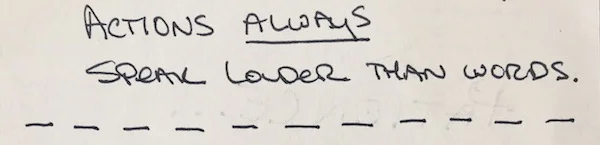 ACTIONS ALWAYS
SPEAK LOUDER THAN WORDS.